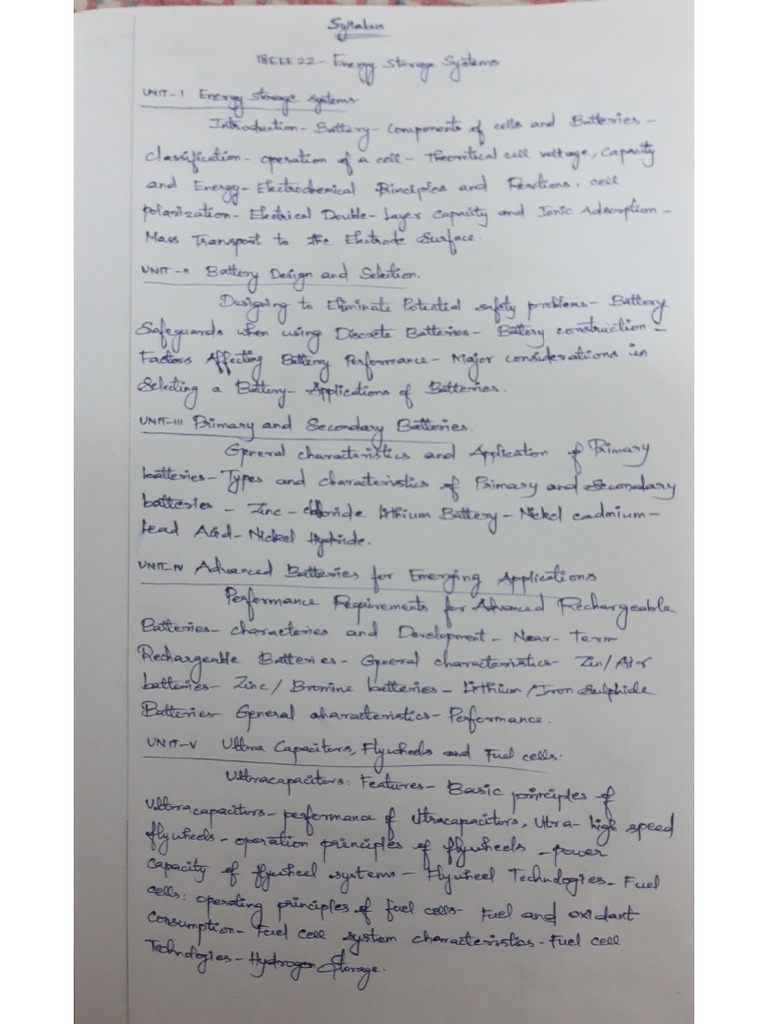 Syllabus
18EEE22 - Energy Storage Systems
UNIT-I Energy Storage systems.
Introduction - Battery - Components of cells and Batteries -
classification - operation of a cell - Theoritical cell voltage, Capacity
and Energy - Electrochemical Principles and Reactions, cell
polarization - Electrical Double - Layer Capacity and Ionic Adsorption -
Mass Transport to the Electrode Surface.
UNIT-II Battery Design and Selection.
Designing to Eliminate Potential safety problems - Battery
Safeguards when using Discrete Batteries - Battery construction -
Factors Affecting Battery Performance - Major considerations in
Selecting a Battery - Applications of Batteries.
UNIT-III Primary and Secondary Batteries.
General characteristics and Application of Primary
batteries - Types and characteristics of Primary and Secondary
batteries - Zinc - chloride lithium Battery - Nickel cadmium -
Lead Acid - Nickel Hydride.
UNIT-IV Advanced Batteries for Emerging Applications
Performance Requirements for Advanced Rechargeable
Batteries - characteries and Development - Near - Term
Rechargeable Batteries - General characteristics - Zin/Air
batteries - Zinc/Bromine batteries - Lithium/Iron Sulphide
Batteries General characteristics - Performance.
UNIT-V Ultra Capacitors, Flywheels and Fuel cells:
Ultracapacitors: Features - Basic principles of
Ultracapacitors - performance of Utracapacitors, Utra - high speed
flywheels - operation principles of flywheels - power
capacity of flywheel systems - Flywheel Technologies - Fuel
cells: operating principles of fuel cells - Fuel and oxidant
Consumption - Fuel cell system characteristics - Fuel cell
Technologies - Hydrogen Storage.